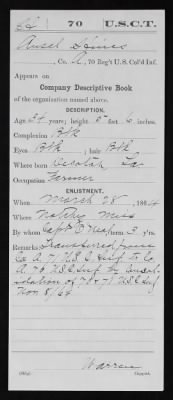 H | 70 | U.S.C.T.
Ansel Hines
, Co. A, 70 Reg't U.S. Col'd Inf.
Appears on
Company Descriptive Book
of the organization named above.
DESCRIPTION.
Age 24 years; height 5 feet 6 inches.
Complexion Blk
Eyes Blk ; hair Blk
Where born La
Occupation Farmer
ENLISTMENT.
When March 28, 1864
Where Natchez Miss
By whom Capt ; term 3 y'rs.
Remarks: Transferred from
Co A 71 U.S.C. Inf to Co
A 70 U.S.C. Inf by consol
idation of 70 & 71 U.S.C. Inf
Nov 8/64
Warren
Copyist.